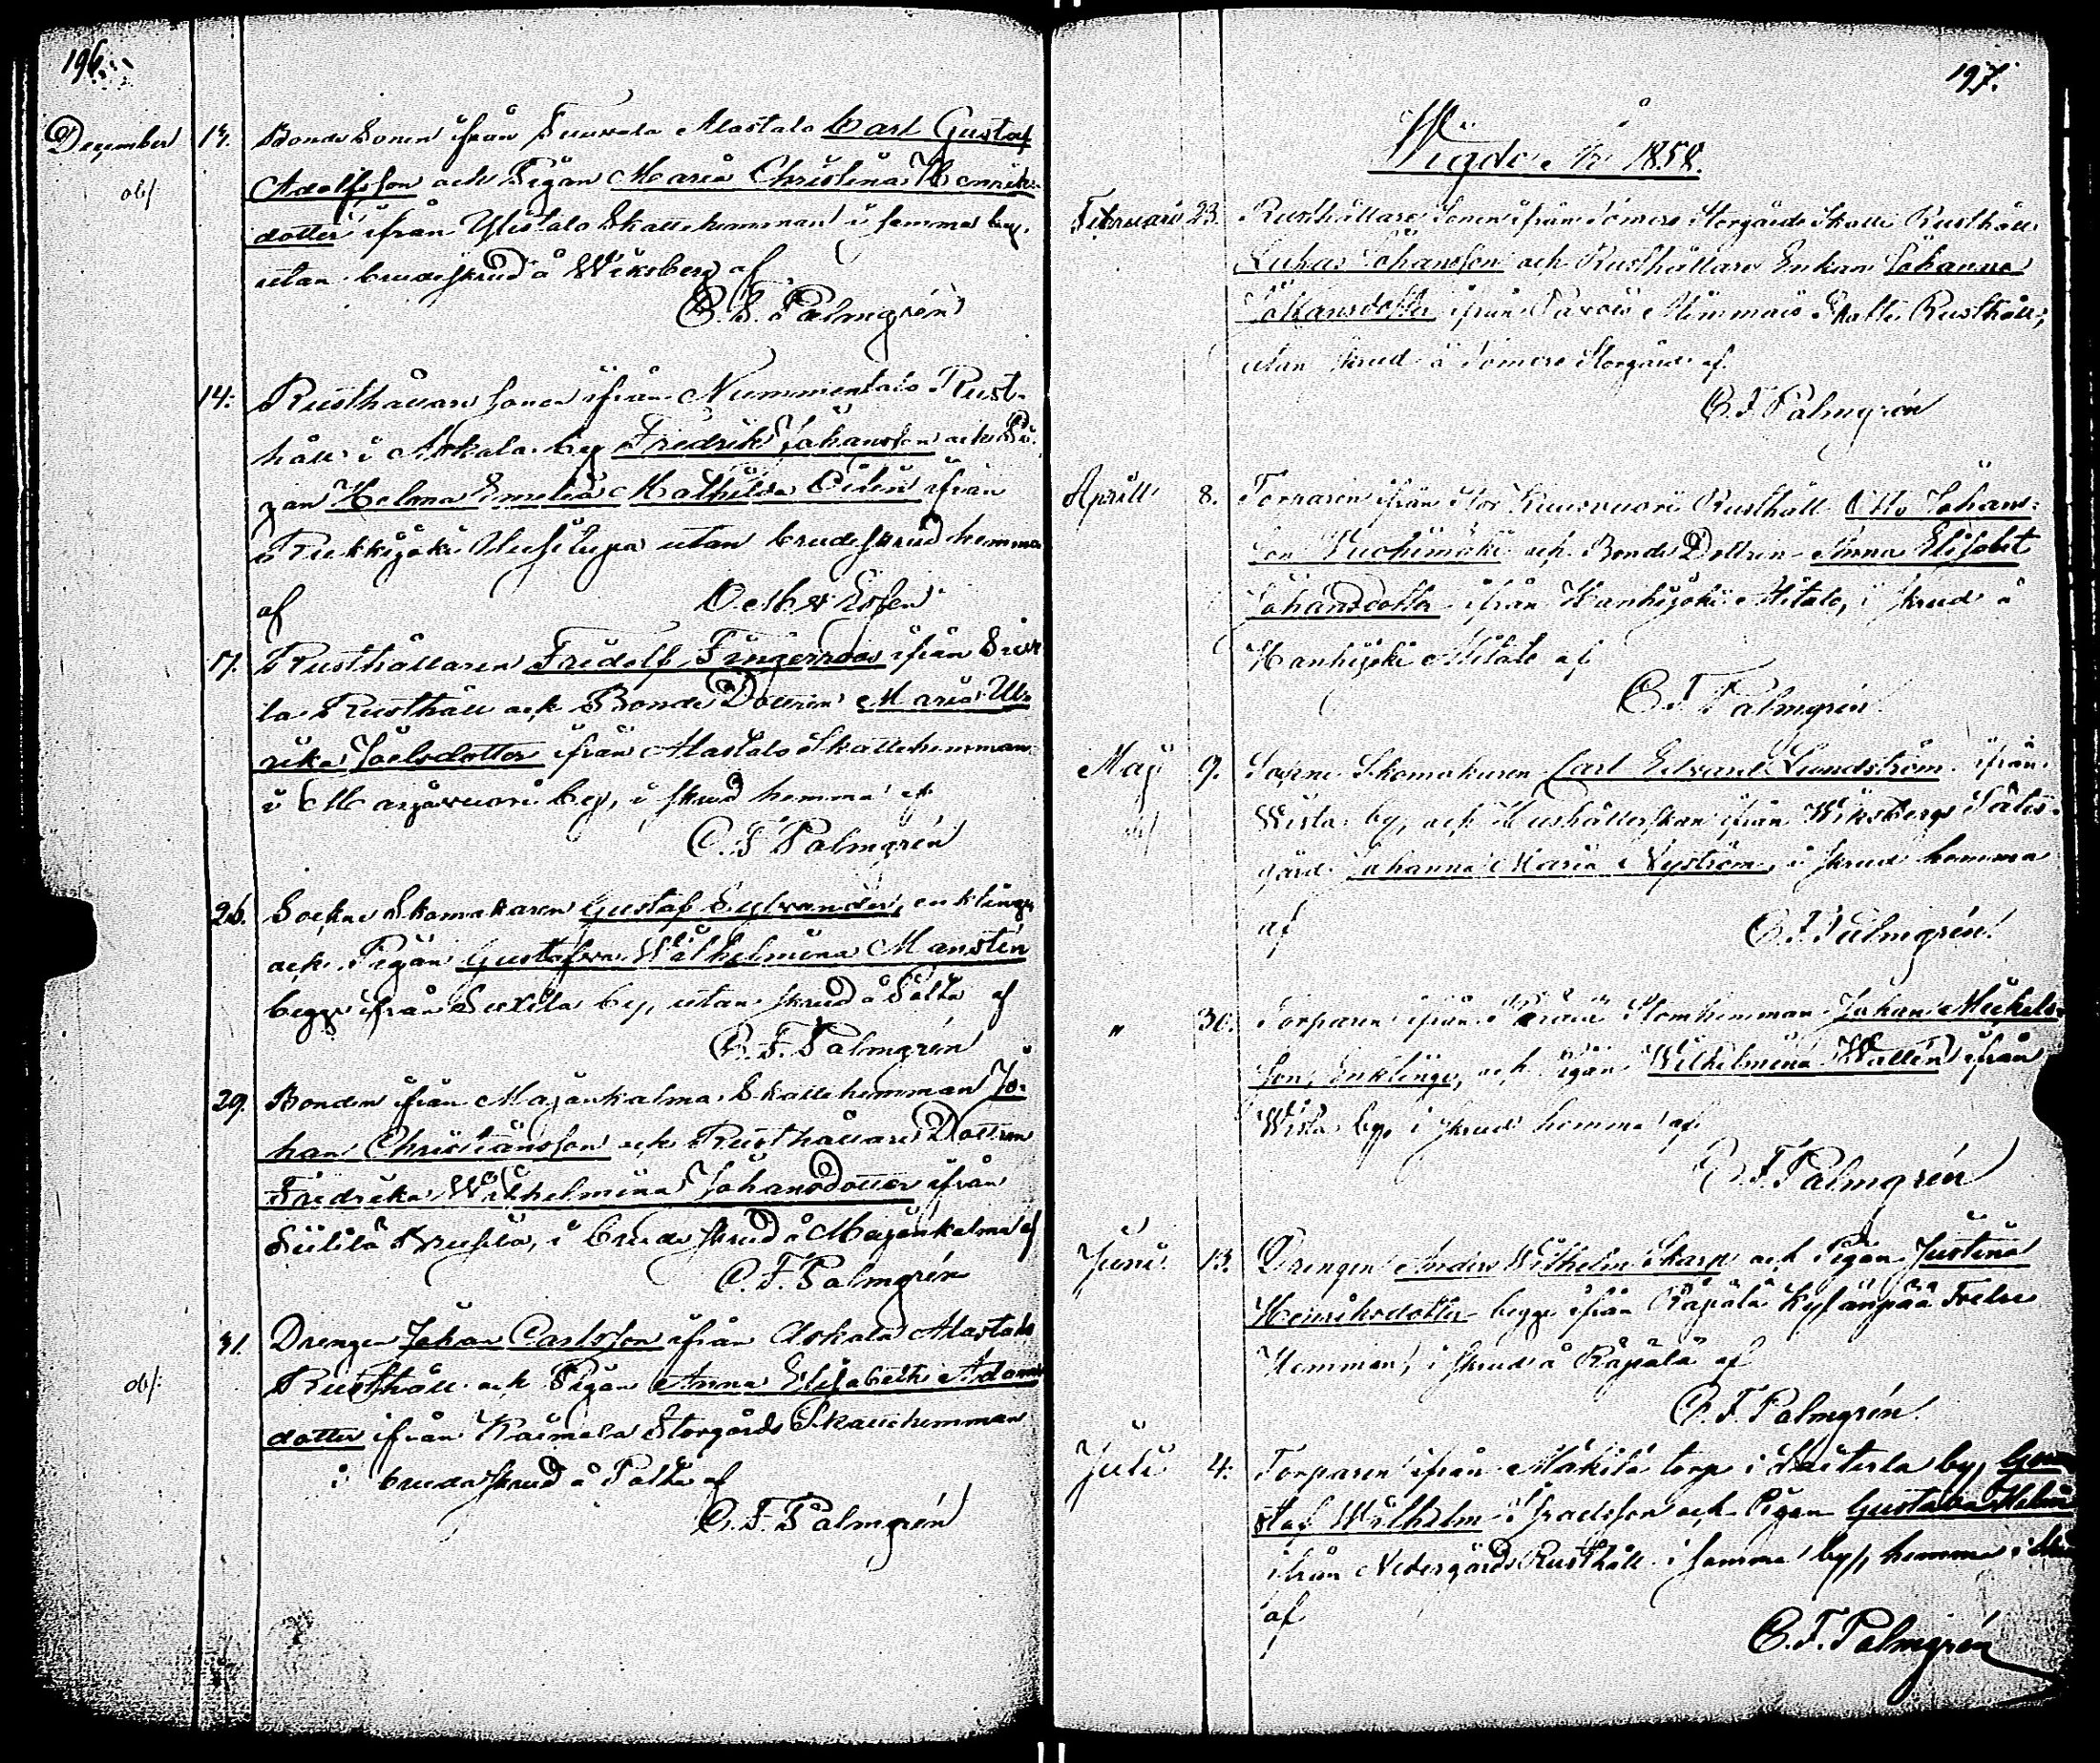 196.
December 13. BondeSonen ifrån Suurala Alastalo Carl Gustaf
obs Adolfsson och Pigan Maria Christina Henriks
dotter ifrån Ylistalo Skattehemman i samma by,
utan brudeskrud å Wiksberg af
C. F. Palmgrén
14. Rusthållare sonen ifrån Nummentalo Rust-
håll i Askala by Fredrik Johansson och Pi-
gan Helena Emelia Mathilda ifrån
utan brudeskrud hemma
af
17. Rusthållaren Fridolf Fingerroos ifrån
la Rusthåll och Bonde Dottren Maria Ul-
rika Joelsdotter ifrån Alastalo Skattehemman
i Marjavuori by, i skrud hemma af
C. F. Palmgrén
26. Sockne Skomakaren Gustaf Sylvander, enkling
och Pigan Gustafva Wilhelmina Mansten
begge ifrån by, utan skrud å Palta af
C. F. Palmgrén
29. Bonden ifrån Majankalma Skattehemman Jo-
han Christiansson och Rusthållare Dottren
Fredrika Wilhelmina Johansdotter ifrån
i brudeskrud å Majankalma af
C. F. Palmgrén
31. Drengen Johan Carlsson ifrån Askala Alastalo
obs. Rusthåll och Pigan Anna Elisabeth Adams
dotter ifrån Storgårds Skattehemman
i brudeskrud å Palta af
C. F. Palmgrén
197.
Wigde År 1858.
Februari 23. Rusthållare Sonen ifrån Storgårds Skatte Rusthåll
Lukas Johansson och Rusthållare Enkan Johanna
Johansdotter ifrån Skatte Rusthåll,
utan skrud å Storgård af
C. F. Palmgrén
Aprill 8. Torparen ifrån Stor Rusthåll Otto Johans-
son och Bonde Dottren Anna Elisabet
Johansdotter ifrån Hanhijoki i skrud å
Hanhijoki af
C. F. Palmgrén
Maj 9. Sockne Skomakaren Carl Edvard Lundström ifrån
obs Wista by, och Hushållerskan ifrån Wiksbergs Säteri-
gård Johanna Maria Nyström, i skrud hemma
af C. F. Palmgrén
" 30. Torparen ifrån Stomhemman Johan Mickels-
son, Enkling, och Pigan Wilhelmina Wallen ifrån
Wista by i skrud hemma af
C. F. Palmgrén
Juni 13. Drengen Anders Wilhelm Skarp och Pigan Justina
Henriksdotter begge ifrån Räpälä Frelse
Hemman, i skrud å Räpälä af
C. F. Palmgrén
Juli 4. Torparen ifrån Mäkilä torp i by,
staf Wilhelm och Pigan Gustava
ifrån Nedergårds Rusthåll i samma by, hemma i
af
C. F. Palmgrén